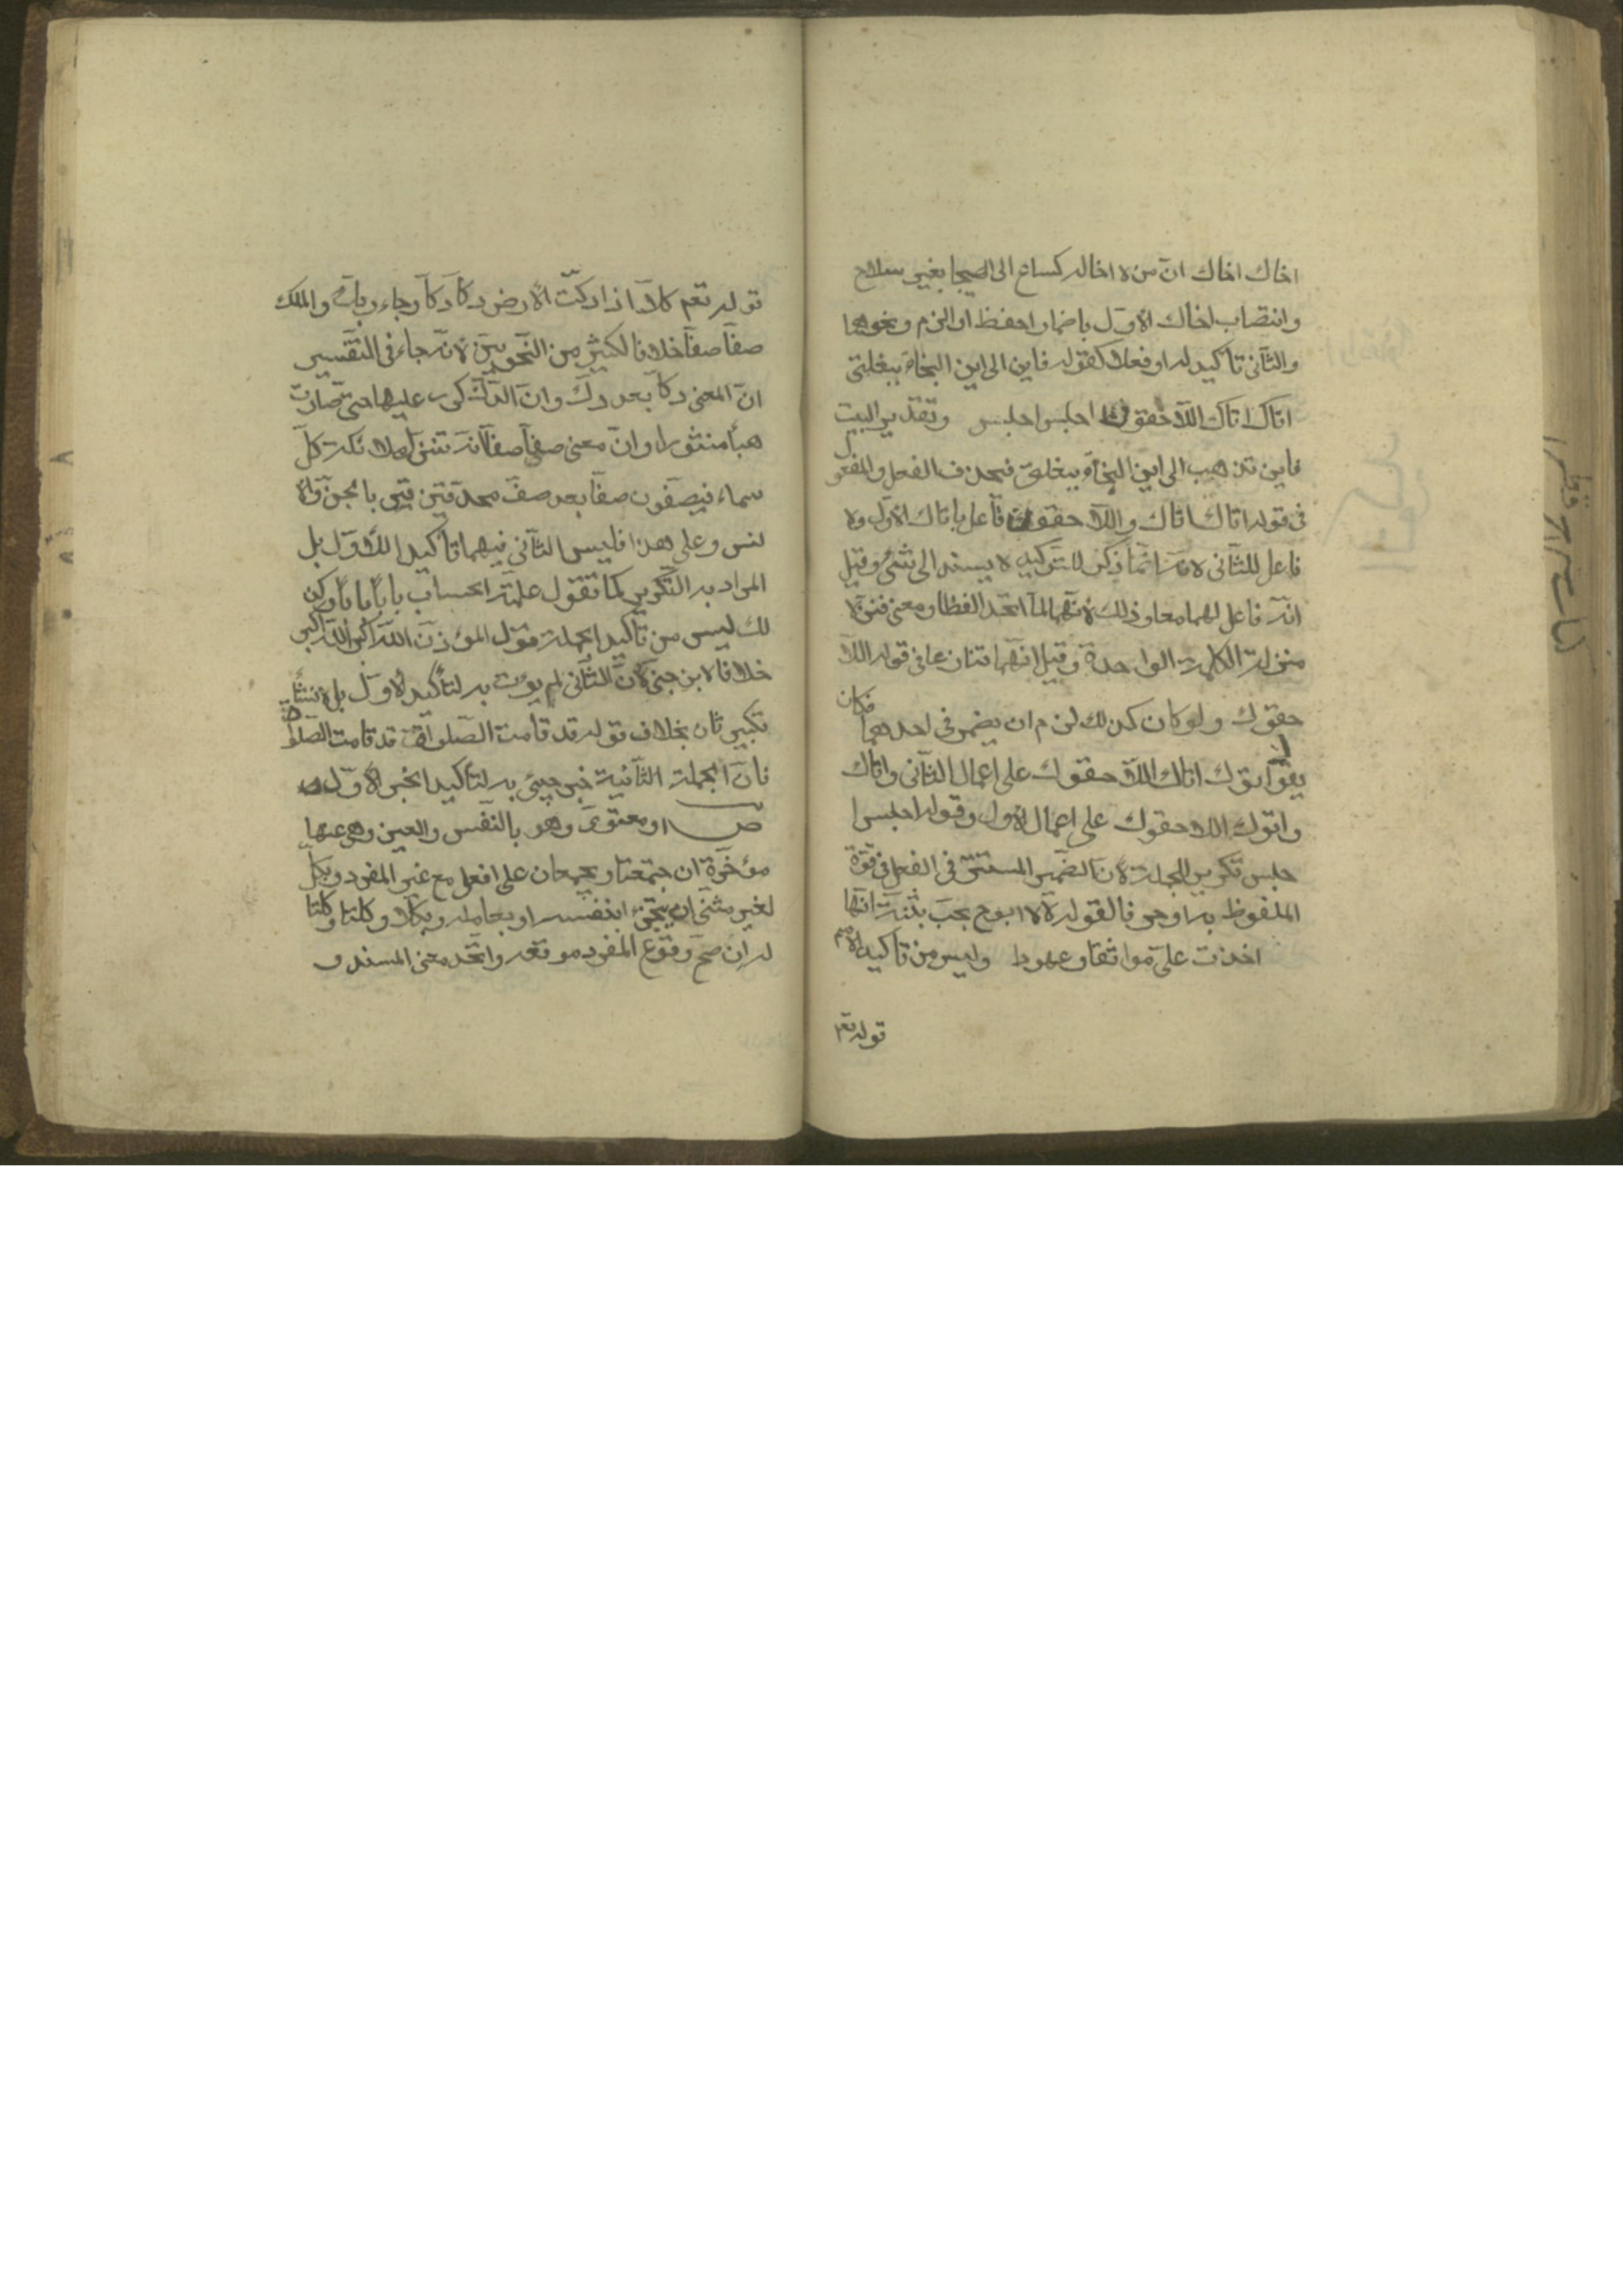 اخاك اخاك ان من لا اخا له كساع الى الهيجا بغير سلاح
وانتصاب اخاك الاول باضمار احفظ او الزم ونحوهما
والثاني تاكيد له او فعلا كقوله فاين الى اين النجاة ببغلتي
اتاك اتاك اللاحقوك احبس احبس وتقدير البيت
فاين تذهب الى اين النجاة ببغلتي فحذف الفعل والمفعول
في قوله اتاك اتاك واللاحقوك فاعل باتاك الاول ولا
فاعل للثاني لانه انما ذكر للتوكيد لا ليسند الى شئ وقيل
انه فاعل لهما معا وذلك لانهما لما اتحدا لفظا ومعنى نزلا
منزلة الكلمة الواحدة وقيل انهما تنازعا في قوله اللا
حقوك ولو كان كذلك لزم ان يضمر في احدهما فكان
يقول اتوك اتاك اللاحقوك على اعمال الثاني واتاك
واتوك اللاحقوك على اعمال الاول وقوله احبس ا
حبس تكرير للجملة لان الضمير المستتر في الفعل في قوة
الملفوظ به او حرفا لقوله لا لا ابوح بحب بثنة انها
اخذت علي مواثقا وعهودا وليس من تاكيد الاسم
قوله تعم
قوله تعم كلا اذا دكت الارض دكا دكا وجاء ربك والملك
صفا صفا خلافا لكثير من النحويين لانه جاء في التفسير
ان المعنى دكا بعد دك وان الدك كرر عليها حتى صارت
هبأ منثورا وان معنى صفا صفا انه تنزل ملائكة كل
سماء فيصفون صفا بعد صف محدقين بالجن والا
لنس وعلى هذا فليس الثاني فيهما تاكيدا للاول بل
المراد به التكرير كما تقول علمته الحساب بابا بابا وكذ
لك ليس من تاكيد الجملة قول المؤذن الله اكبر الله اكبر
خلافا لابن جني لان الثاني لم يؤت به لتاكيد الاول بل لانشاء
تكبير ثان بخلاف قوله قد قامت الصلوة قد قامت الصلوة
فان الجملة الثانية خبر جيئ به لتأكيد الخبر الاول
ص او معنوي وهو بالنفس والعين وهي عنها
مؤخرة ان جتمعتا ويجمعان على افعل مع غير المفرد وبكل
لغير مثنى ان تجزئ بنفسه او بعامله وبكلا وكلتا
له ان صح وقوع المفرد موقعه واتحد معنى المسند و